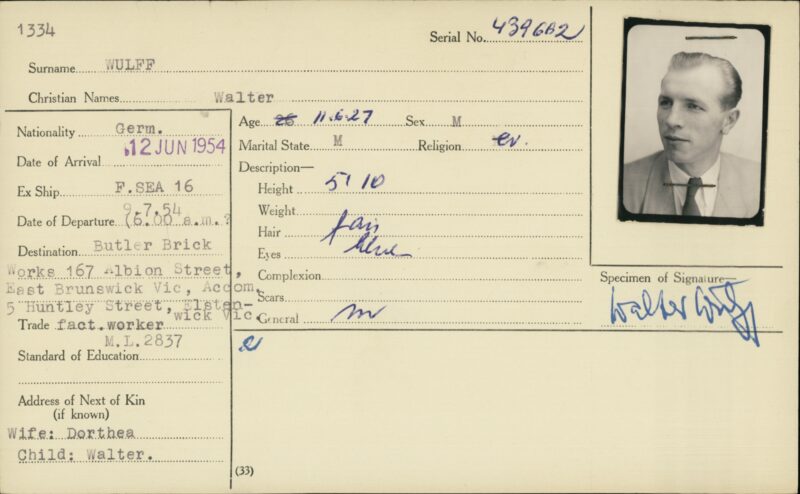 1334
Serial No. 439682
Surname WULFF
Christian Names Walter
Nationality Germ.
Date of Arrival 12 JUN 1954
Ex Ship F.SEA 16
9.7.54
Date of Departure (6.00 a.m.?
Destination Butler Brick
Works 167 Albion Street,
East Brunswick Vic, Accom.
5 Huntley Street, Elsten-
wick Vic.
Trade fact.worker
M.L.2837
Standard of Education
Address of Next of Kin
(if known)
Wife: Dorthea
Child: Walter.
Age 26 11.6.27 Sex M
Marital State M Religion ev.
Description—
Height 5' 10
Weight
Hair fair
Eyes blue
Complexion
Scars
General
(33)
Specimen of Signature—
Walter Wulff